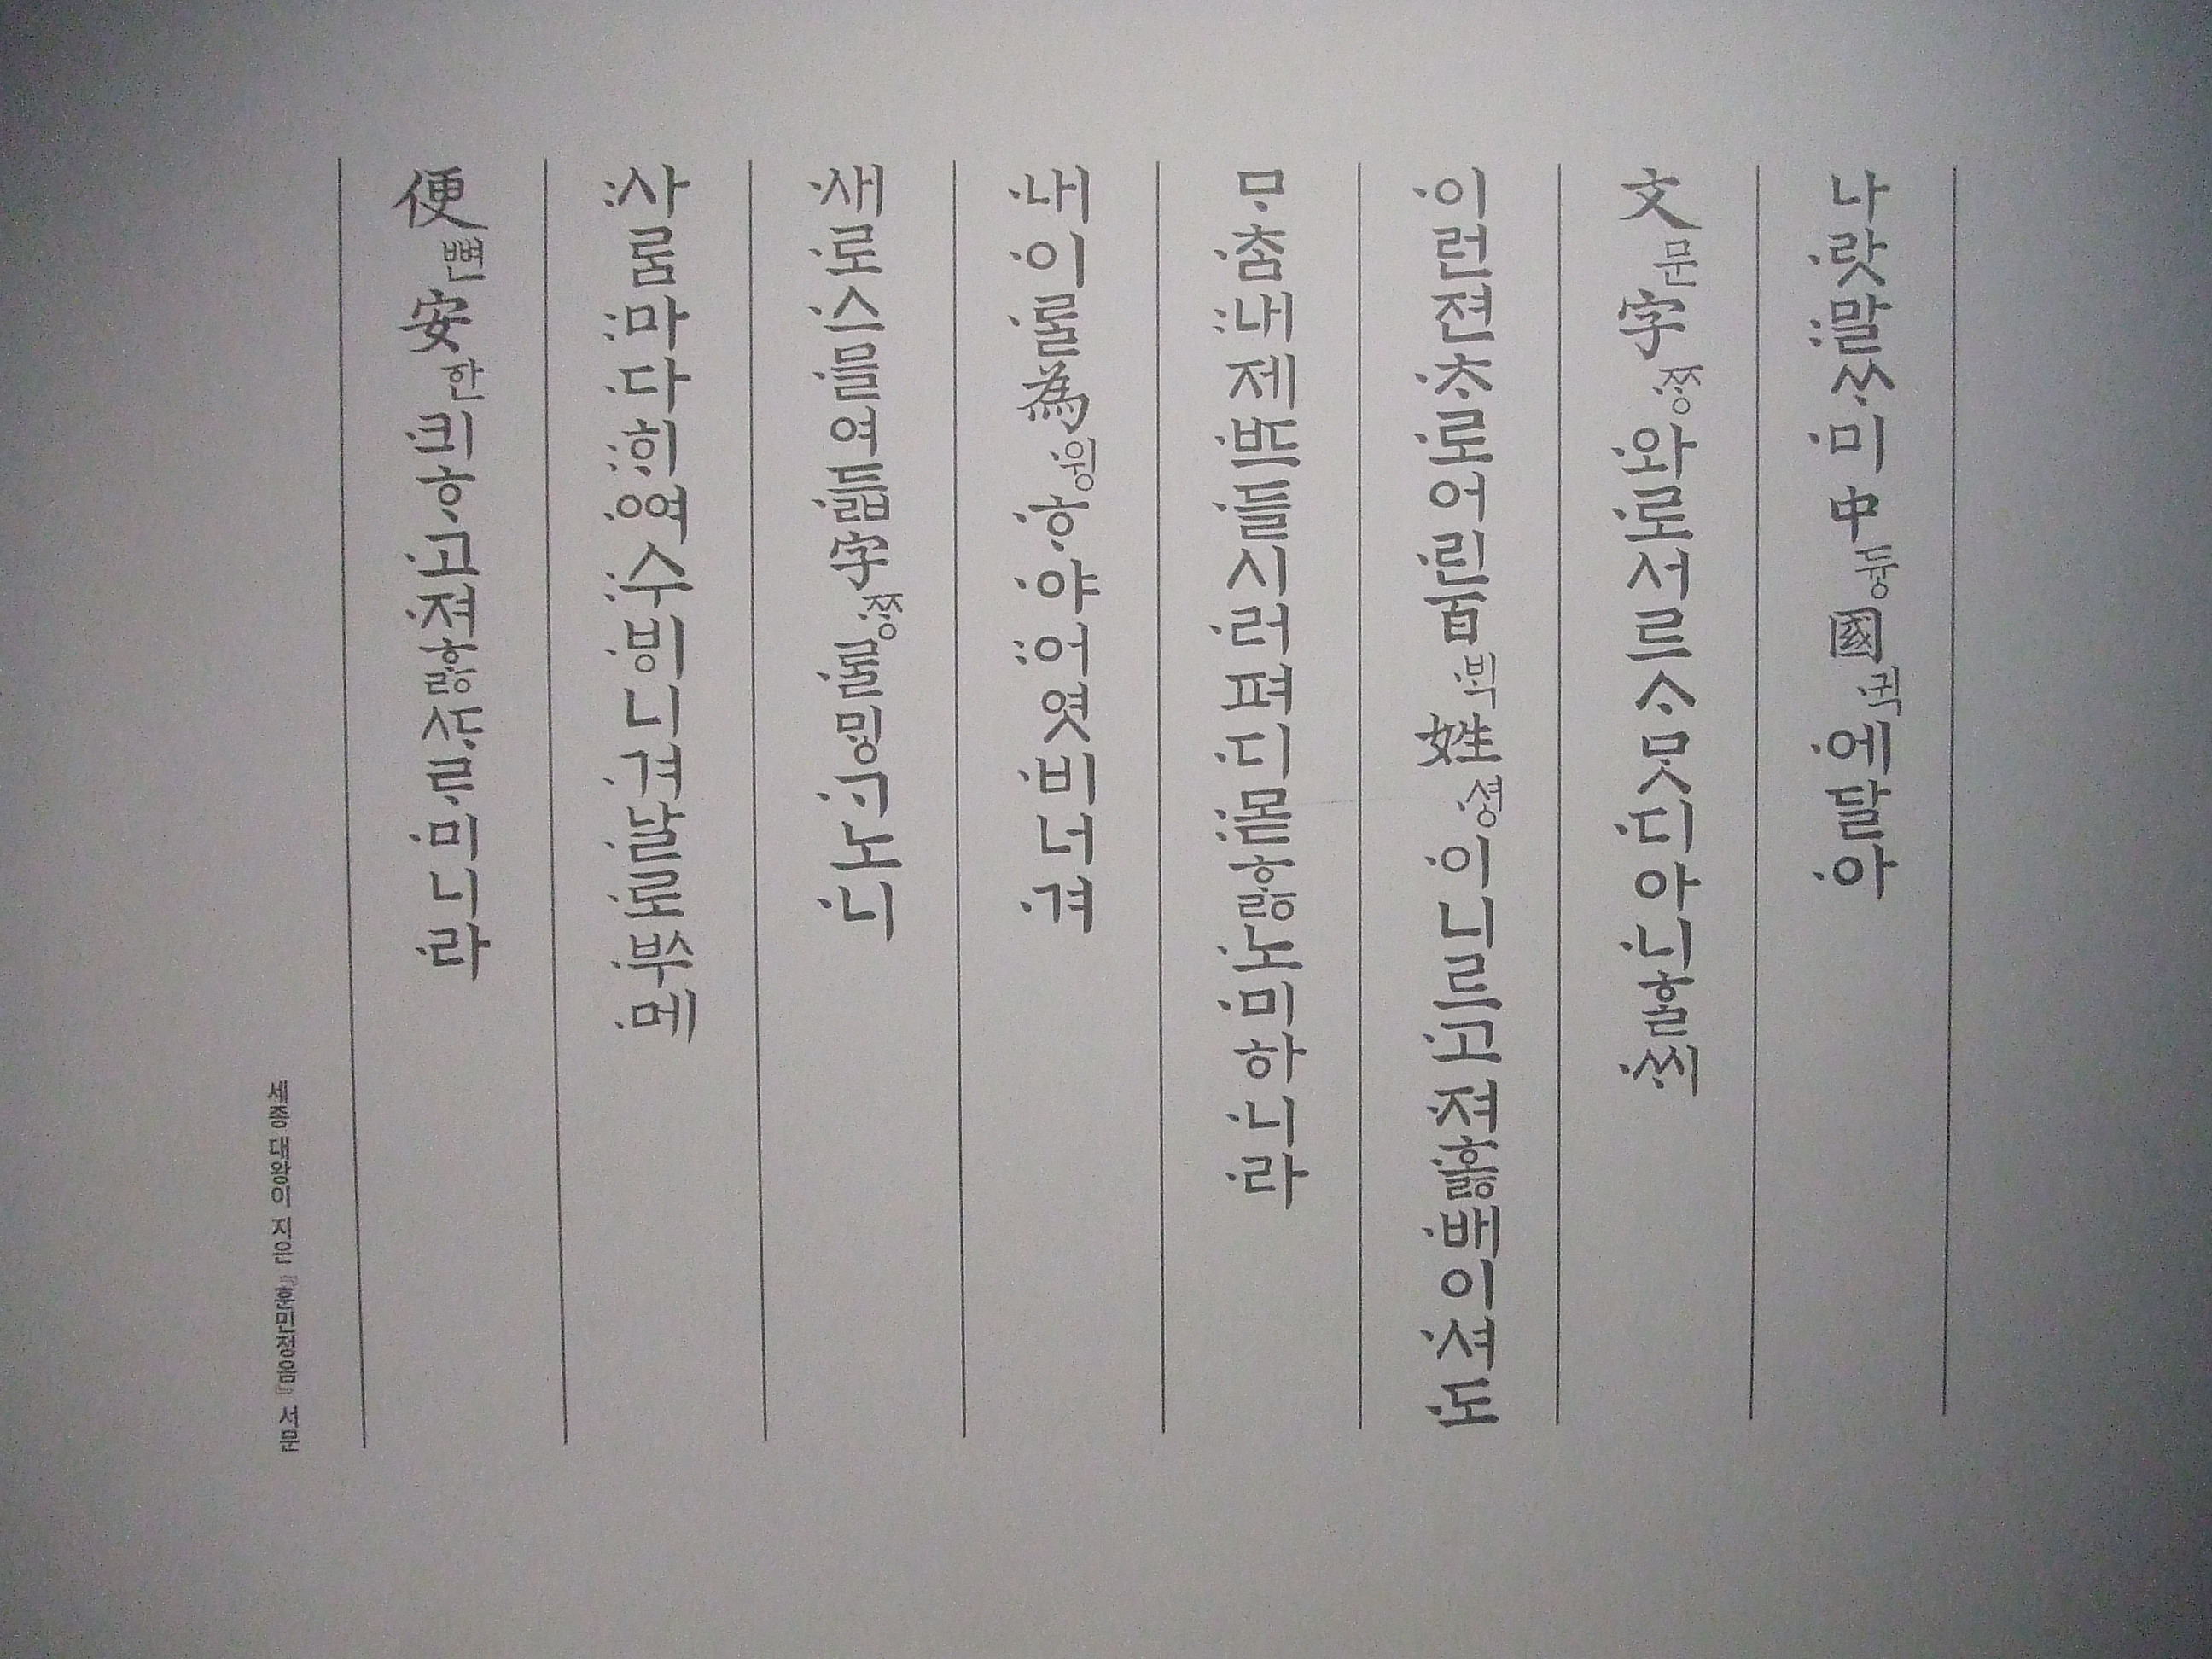 나·랏:말ᄊᆞ·미中듕國·귁·에달·아
文문字·ᄍᆞᆼ·와·로서르ᄉᆞᄆᆞᆺ·디아·니ᄒᆞᆯ·ᄊᆡ
·이런젼·ᄎᆞ·로어·린百·ᄇᆡᆨ姓·셩·이니르·고·져·ᄒᆞᇙ·배이·셔·도
ᄆᆞ·ᄎᆞᆷ:내제·ᄠᅳ·들시·러펴·디:몯ᄒᆞᇙ·노·미하·니·라
·내·이·ᄅᆞᆯ為·윙·ᄒᆞ·야:어엿·비너·겨
·새·로·스·믈여·듧字·ᄍᆞᆼ·ᄅᆞᆯᄆᆡᇰ·ᄀᆞ노·니
:사ᄅᆞᆷ:마·다:ᄒᆡ·ᅇᅧ:수·ᄫᅵ니·겨·날·로·ᄡᅮ·메
便뼌安한·킈ᄒᆞ·고·져ᄒᆞᇙᄯᆞᄅᆞ·미니·라
세종 대왕이 지은 『훈민정음』 서문